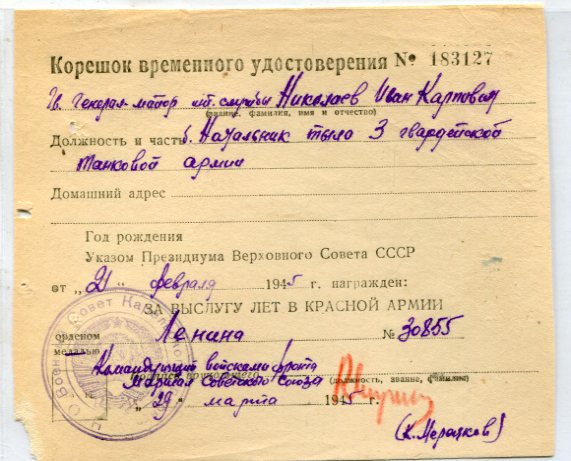 Корешок временного удостоверения № 183127
Гв. Генерал-майор инт. службы Николаев Иван Карпович
(звание, фамилия, имя и отчество)
Должность и часть б. Начальник тыла 3 гвардейской
танковой армии
Домашний адрес
Год рождения
Указом Президиума Верховного Совета СССР
от „21“ февраля 1945 г. награжден:
ЗА ВЫСЛУГУ ЛЕТ В КРАСНОЙ АРМИИ
орденом Ленина № 30855
медалью
Командующий войсками фронта
Маршал Советского Союза (должность, звание, фамилия)
„29“ марта 1945 г.
(К. Мерецков)